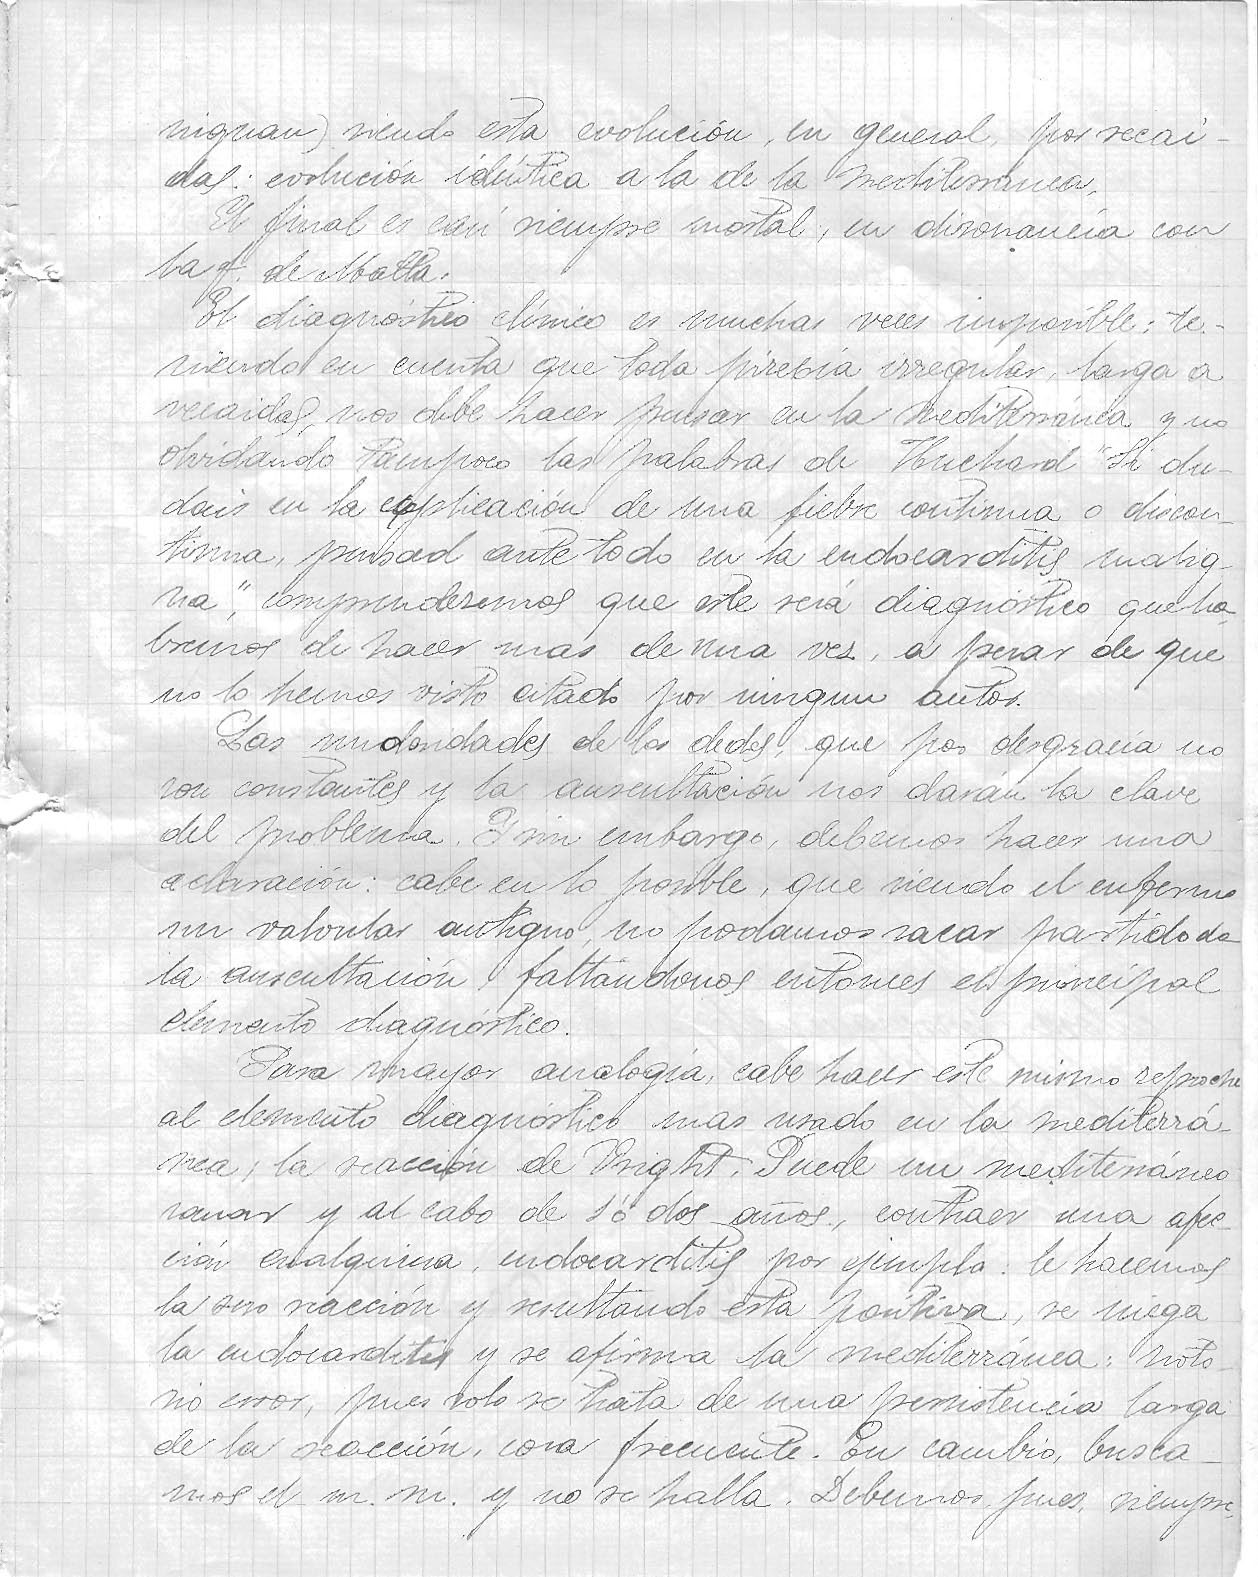 niquan) siendo esta evolución, en general, por recaí-
das: evolución idéntica a la de la mediterranea.
El final es casi siempre mortal, en disonancia con
la f. de Malta.
El diagnóstico clínico es muchas veces imposible: te-
niendo en cuenta que toda pirexia irregular, larga a
recaidas, nos debe hacer pensar en la mediterránea y no
olvidando tampoco las palabras de Huchard "Si du-
dais en la explicación de una fiebre continua o discon-
tinua, pensad ante todo en la endocarditis malig-
na", comprenderemos que este será diagnóstico que ha-
bremos de hacer mas de una vez, a pesar de que
no lo hemos visto citado por ningun autor.
Las nudosidades de los dedos, que por desgracia no
son constantes y la auscultación nos darán la clave
del problema. Y sin embargo, debemos hacer una
aclaración: cabe en lo posible, que siendo el enfermo
un valvular antiguo, no podamos sacar partido de
la auscultación, faltándonos entonces el principal
elemento diagnóstico.
Para mayor analogía, cabe hacer este mismo reproche
al elemento diagnóstico mas usado en la mediterrá-
nea, la reacción de Wright. Puede un mediterráneo
sanar y al cabo de 1 ó dos años, contraer una afec-
ción cualquiera, endocarditis por ejemplo: le hacemos
la sero reacción y resultando esta positiva, se niega
la endocarditis y se afirma la mediterránea: noto-
rio error, pues solo se trata de una persistencia larga
de la reacción, cosa frecuente. En cambio, busca-
mos el m. m. y no se halla. Debemos, pues, siempre,